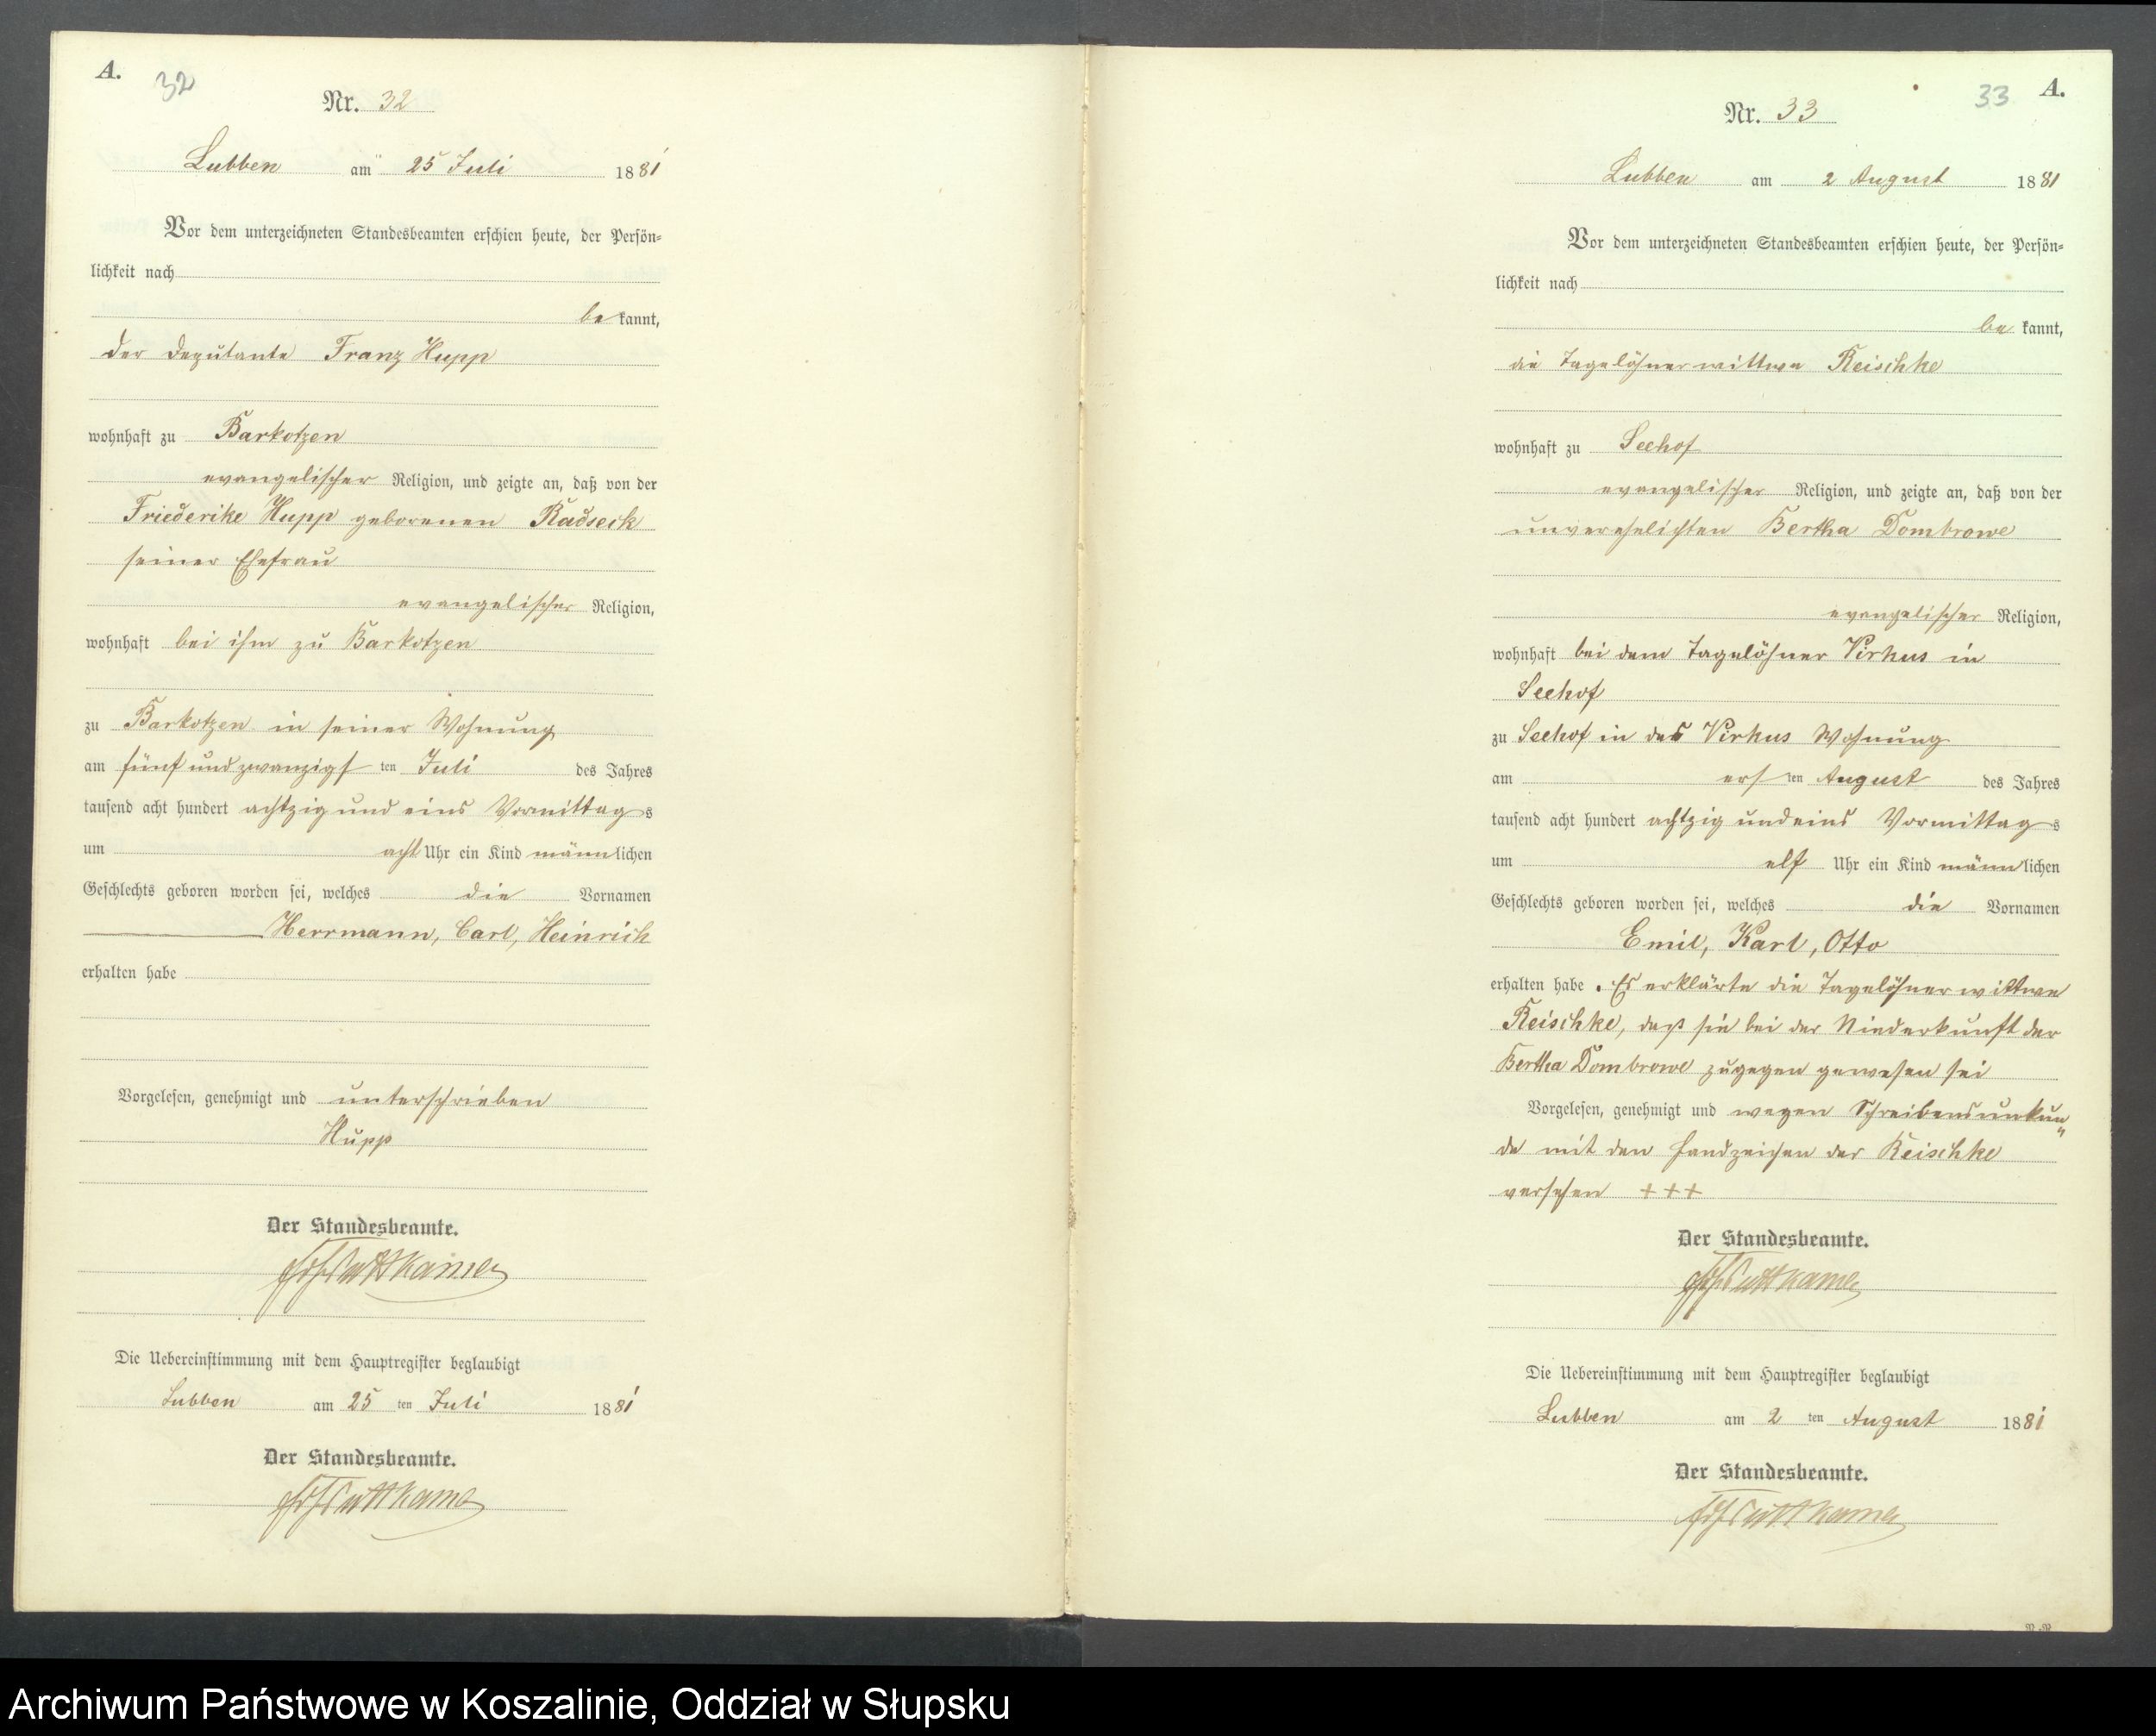 A.
32
Nr. 32
Lubben am 25 Juli 1881
Vor dem unterzeichneten Standesbeamten erschien heute, der Persön-
lichkeit nach
be kannt,
der Deputante Franz Hupp
wohnhaft zu Barkotzen
evangelischer Religion, und zeigte an, daß von der
Friederike Hupp geborenen Radseck
seiner Ehefrau
evangelischer Religion,
wohnhaft bei ihm zu Barkotzen
zu Barkotzen in seiner Wohnung
am fünf und zwanzigsten Juli des Jahres
tausend acht hundert achtzig und eins Vormittags
um acht Uhr ein Kind männlichen
Geschlechts geboren worden sei, welches die Vornamen
Herrmann, Carl, Heinrich
erhalten habe
Vorgelesen, genehmigt und unterschrieben
Hupp
Der Standesbeamte.
Puttkamer
Die Uebereinstimmung mit dem Hauptregister beglaubigt
Lubben am 25 ten Juli 1881
Der Standesbeamte.
Puttkamer
33 A.
Nr. 33
Lubben am 2 August 1881
Vor dem unterzeichneten Standesbeamten erschien heute, der Persön-
lichkeit nach
be kannt,
die Tagelöhnerwittwe Reischke
wohnhaft zu Seehof
evangelischer Religion, und zeigte an, daß von der
unverehelichten Bertha Dombrowe
evangelischer Religion,
wohnhaft bei dem Tagelöhner Virkus in
Seehof
zu Seehof in des Virkus Wohnung
am ersten August des Jahres
tausend acht hundert achtzig und eins Vormittags
um elf Uhr ein Kind männlichen
Geschlechts geboren worden sei, welches die Vornamen
Emil, Karl, Otto
erhalten habe. Es erklärte die Tagelöhnerwittwe
Reischke, daß sie bei der Niederkunft der
Bertha Dombrowe zugegen gewesen sei
Vorgelesen, genehmigt und wegen Schreibensunkun„
de mit den Handzeichen der Reischke
versehen +++
Der Standesbeamte.
Puttkamer
Die Uebereinstimmung mit dem Hauptregister beglaubigt
Lubben am 2 ten August 1881
Der Standesbeamte.
Puttkamer
Archiwum Państwowe w Koszalinie, Oddział w Słupsku